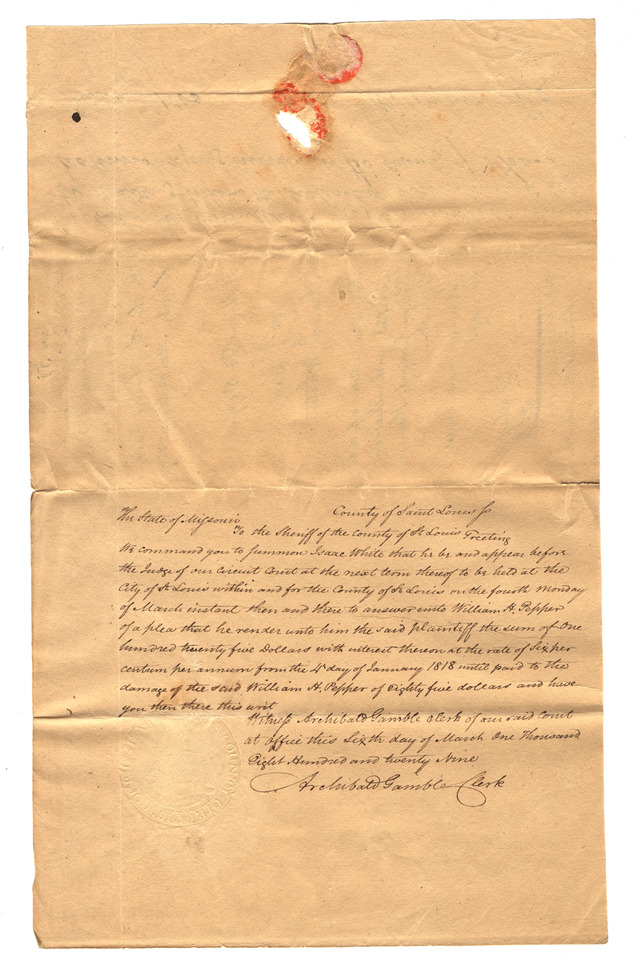 County of Saint Louis ss
The State of Missouri
To the Sheriff of the County of St Louis Greeting
We command you to Summon Isaac White that he be and appear before
the Judge of our Circuit Court at the next term thereof to be held at the
City of St Louis within and for the County of St Louis on the fourth Monday
of March instant then and there to answer unto William H. Pepper
of a plea that he render unto him the said plaintiff the sum of One
hundred twenty five Dollars with interest thereon at the rate of Six per
centum per annum from the 4th day of January 1818 until paid to the
damage of the said William H. Pepper of Eighty five dollars and have
you then there this writ
Witness Archibald Gamble Clerk of our said Court
at office this Sixth day of March One Thousand
Eight Hundred and twenty Nine
Archibald Gamble Clerk